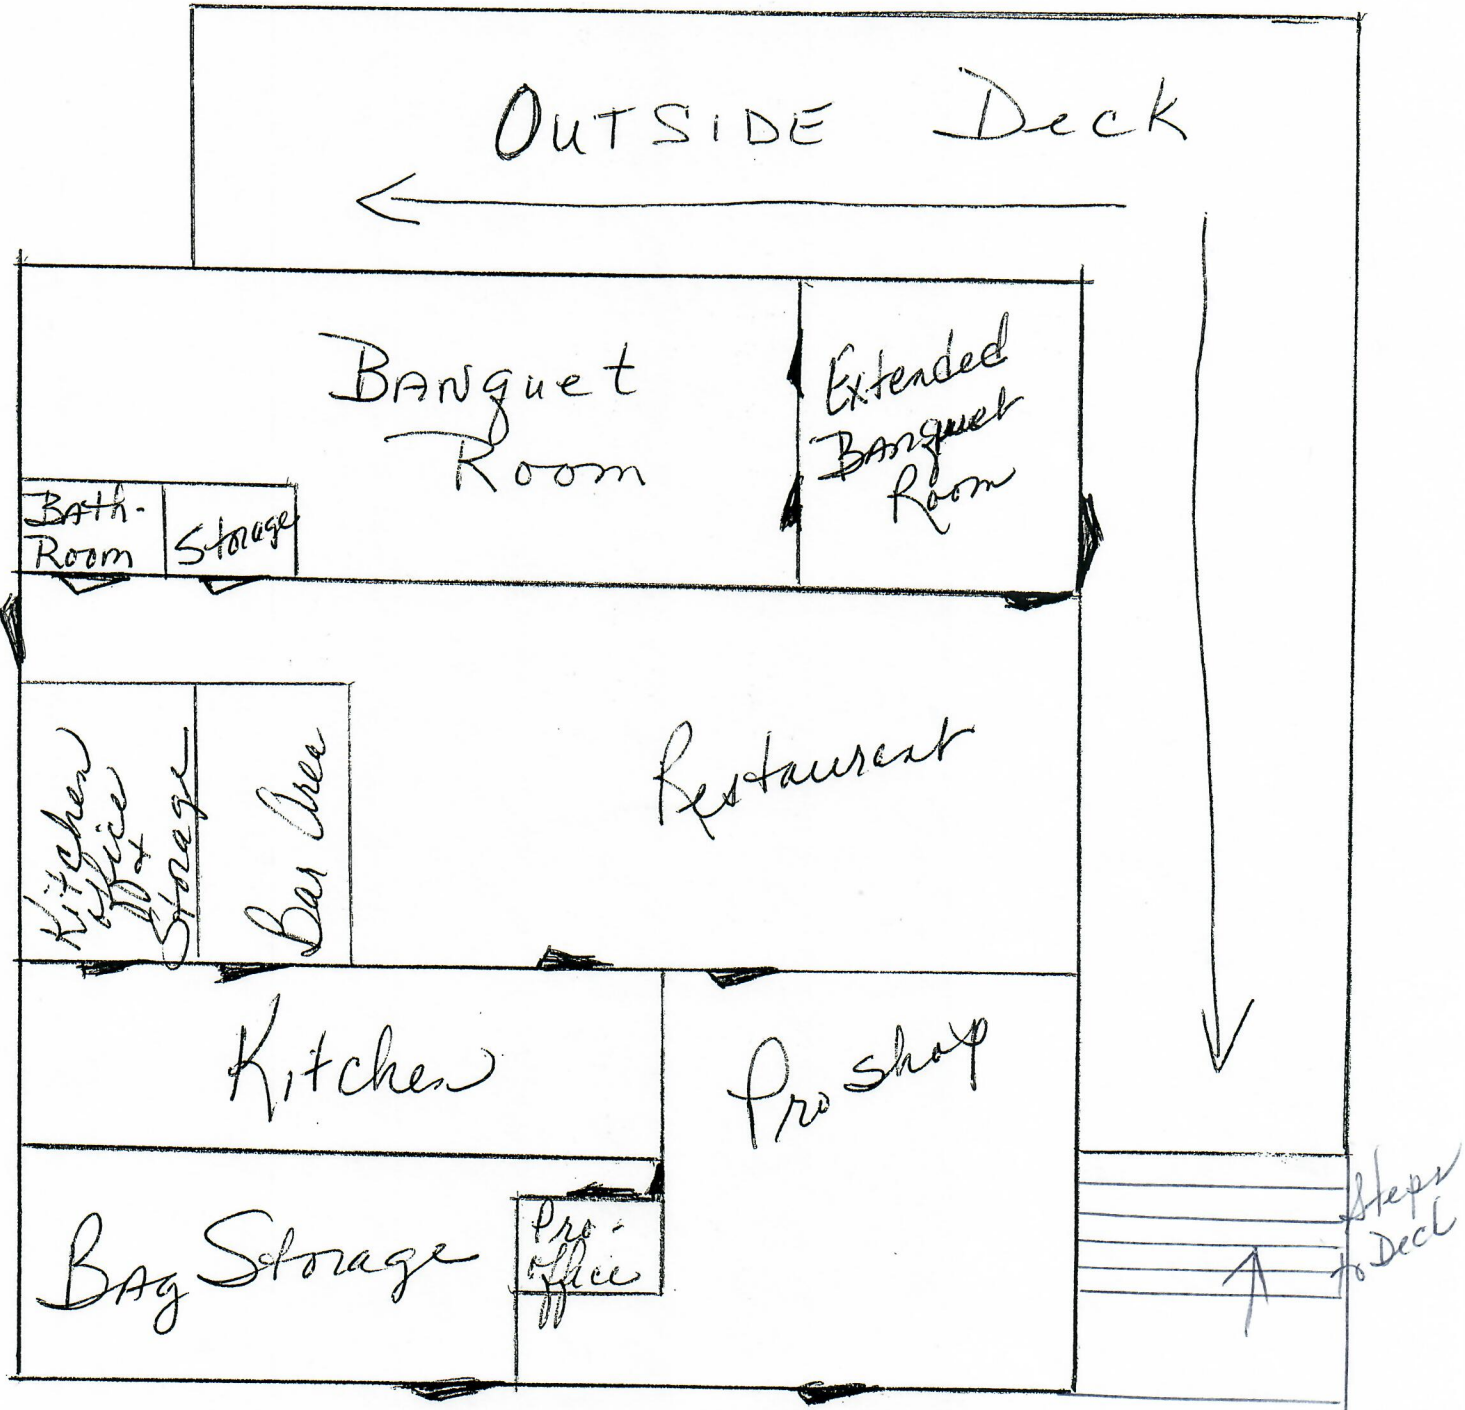 OUTSIDE Deck
BANquet
Room
Extended
BANquet
Room
BAth-
Room
Storage
Kitchen
office
+
Storage
Bar Area
Restaurant
Kitchen
Pro Shop
BAg Storage
Pro-
office
Steps
to Deck